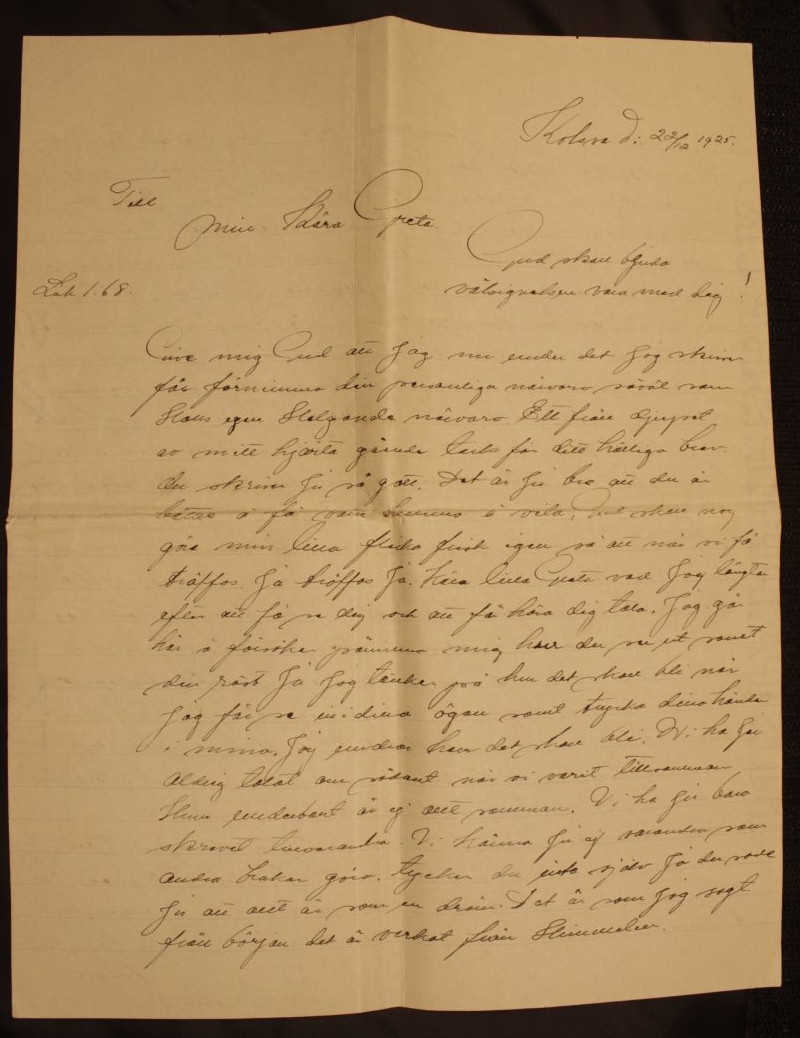 Kolsva d: 22/12 1925.
Till
min Kära Greta.
Gud skall bjuda
Luk 1.68.
välsignelsen vara med dig!
Give mig Gud att jag nu under det jag skriver
får förnimma din personliga närvaro såväl som
Hans egen Helgande närvaro. Ett från djupet
av mitt hjärta gående tack för ditt brev
du skriver ju så gott. Det är ju bra att du är
å få vara hemma å vila, Gud skall nog
göra min lilla flicka frisk igen så att när vi få
träffas. Ja träffas ja. Kära lilla Greta vad jag längtar
efter att få se dig och att få höra dig tala. Jag går
här å försöker påminna mig hur du ser ut samt
din röst Ja jag tänker på hur det skall bli när
jag får se in i dina ögon samt trycka dina händer
i mina. Jag undrar hur det skall bli. Vi ha ju
aldrig talat om sådant när vi varit tillsamman
Hur underbart är ej allt samman. Vi ha ju bara
skrivit till varandra. Vi känna ju ej varandra som
andra brukar göra. tycker du inte själv Ja du sade
ju att allt är som en dröm. Det är som jag sagt
från början det är verkat från Himmelen.